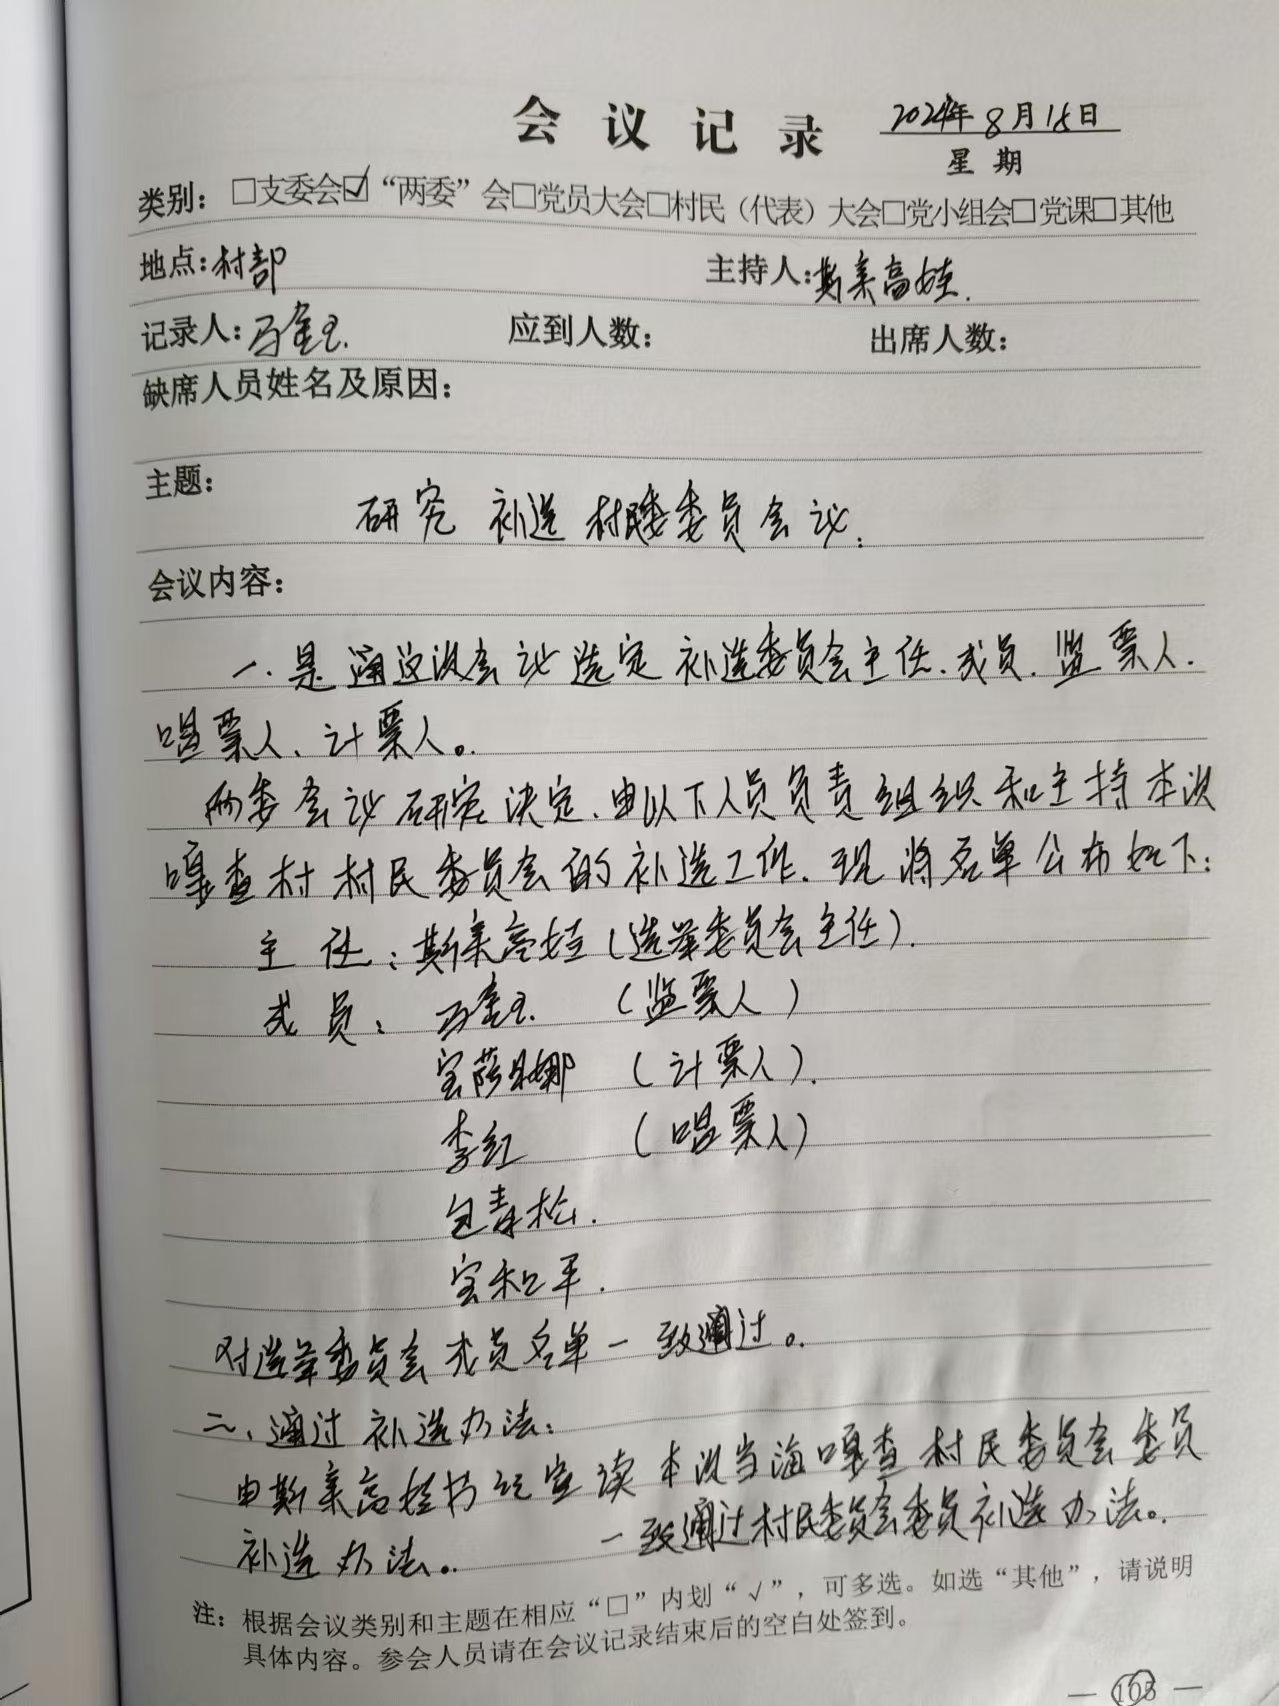 会议记录
2024年8月15日
星期
类别：□支委会☑“两委”会□党员大会□村民（代表）大会□党小组会□党课□其他
地点：村部 主持人：斯琴高娃.
记录人： 应到人数： 出席人数：
缺席人员姓名及原因：
主题：
研究 补选 村民委委员会议.
会议内容：
一.是通过这次会议选定 补选委员会主任.成员.监票人.
唱票人、计票人。
两委会议研究决定.由以下人员负责组织和主持本次
嘎查村村民委员会的补选工作.现将名单公布如下：
主 任：斯琴高娃（选举委员会主任）.
成 员： （监票人）
宝萨日娜 （计票人）.
李红 （唱票人）
包青松.
宝和平.
对选举委员会成员名单一致通过。
二、通过补选办法：
由斯琴高娃书记宣读本次当海嘎查村民委员会委员
补选办法。 一致通过村民委员会委员补选办法。
注：根据会议类别和主题在相应“□”内划“√”，可多选。如选“其他”，请说明
具体内容。参会人员请在会议记录结束后的空白处签到。